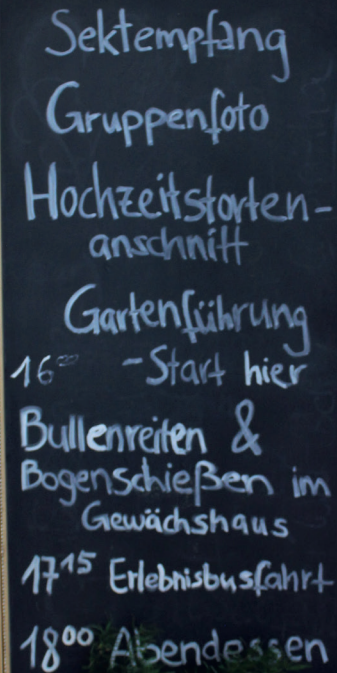 Sektempfang
Gruppenfoto
Hochzeitstorten-
anschnitt
Gartenführung
16⁰⁰ -Start hier
Bullenreiten &
Bogenschießen im
Gewächshaus
17¹⁵ Erlebnisbusfahrt
18⁰⁰ Abendessen